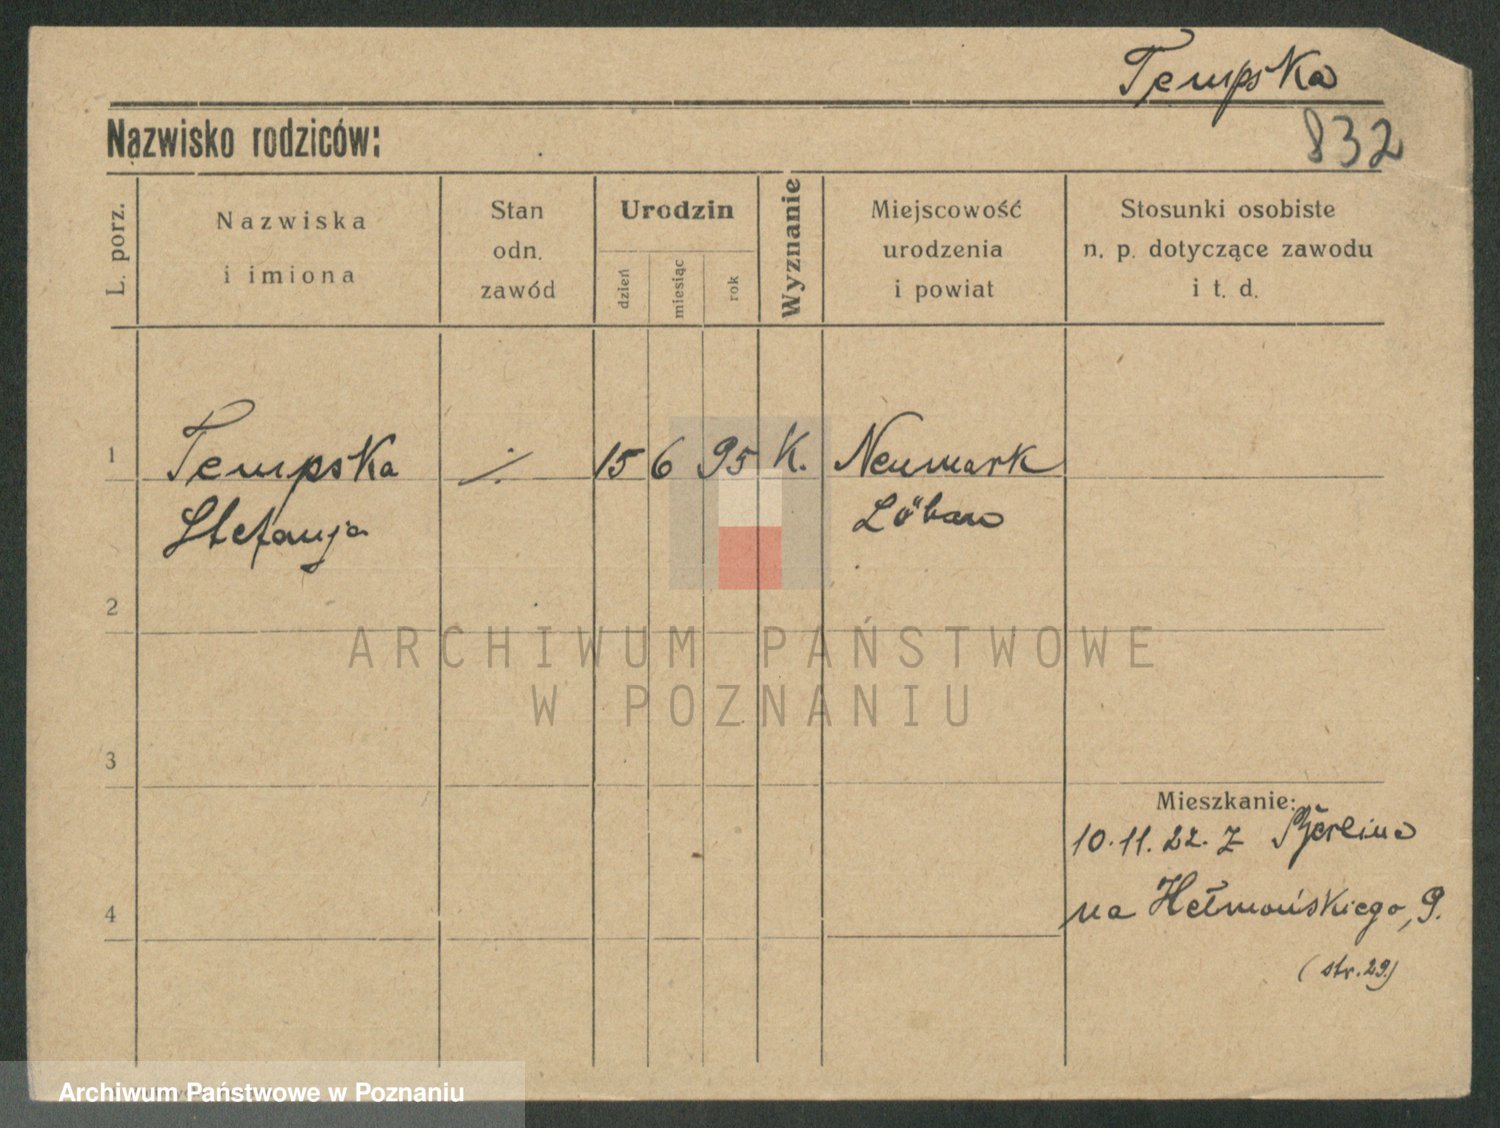 Tempska
Nazwisko rodziców:
832
L. porz.
Nazwiska
i imiona
Stan
odn.
zawód
Urodzin
dzień
miesiąc
rok
Wyznanie
Miejscowość
urodzenia
i powiat
Stosunki osobiste
n. p. dotyczące zawodu
i t. d.
1
Tempska
Stefanja
·/·
15
6
95
K.
Neumark
Löbau
2
ARCHIWUM PAŃSTWOWE
W POZNANIU
3
Mieszkanie:
10.11.22. z Berlina
4
na Hełmońskiego, 9.
(str. 29)
Archiwum Państwowe w Poznaniu